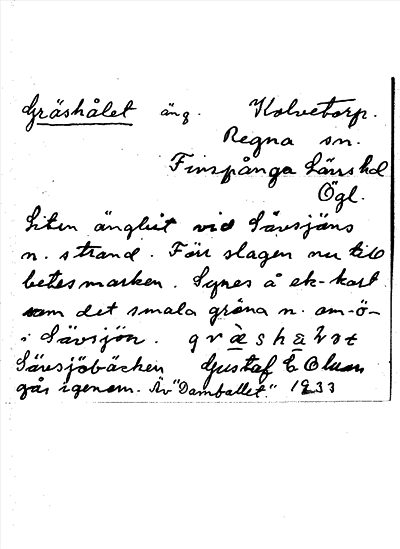 Gräshålet äng. Kolvetorp.
Regna sn.
Finspånga Läns hd
Ögl.
Liten ängbit vid Sävsjäns
n. strand. Förr slagen nu till
betesmarken. Synes å ek-kart
som det smala gröna n. om -ö-
i Sävsjön. g r ä s h å l e t
Sävsjöbäcken Gustaf E Olsson
går igenom. Äv "Damhallet." 1933